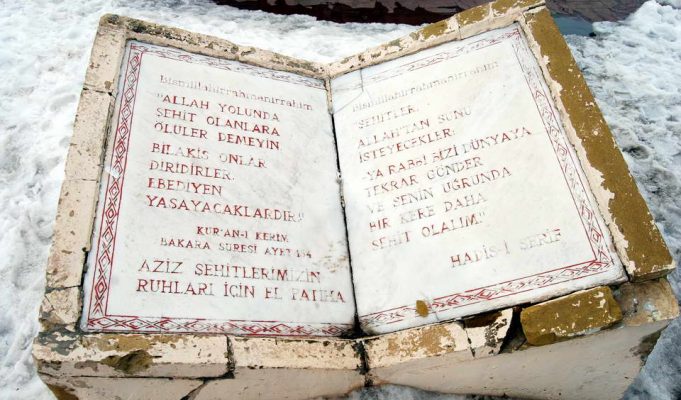 Bismillahirrahmanirrahim
"ALLAH YOLUNDA
ŞEHİT OLANLARA
ÖLÜLER DEMEYİN
BİLAKİS ONLAR
DİRİDİRLER.
EBEDİYEN
YAŞAYACAKLARDIR"
KUR'AN-I KERİM
BAKARA SURESİ AYET 154
AZİZ ŞEHİTLERİMİZİN
RUHLARI İÇİN EL FATİHA
Bismillahirrahmanirrahim
"ŞEHİTLER,
ALLAH'TAN ŞUNU
İSTEYECEKLER:
-YA RABBİ BİZİ DÜNYAYA
TEKRAR GÖNDER
VE SENİN UĞRUNDA
BİR KERE DAHA
ŞEHİT OLALIM"
HADİS-İ ŞERİF